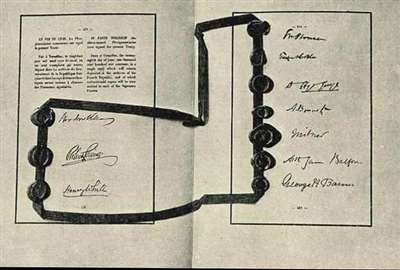 EN FOI DE QUOI, les Plé-
nipotentiaires susnommés ont signé
le présent Traité.
Fait à Versailles, le vingt-huit
juin mil neuf cent dix-neuf, en
un seul exemplaire qui restera
déposé dans les archives du Gou-
vernement de la République fran-
çaise et dont les expéditions authen-
tiques seront remises à chacune
des Puissances signataires.
IN FAITH WHEREOF the
above-named Plenipotentiaries
have signed the present Treaty.
Done at Versailles, the twenty-
eighth day of June, one thousand
nine hundred and nineteen, in a
single copy which will remain
deposited in the archives of the
French Republic, and of which
authenticated copies will be trans-
mitted to each of the Signatory
Powers.
Woodrow Wilson
Robert Lansing
Henry White
D Lloyd George
A. Bonar Law
Milner
Arthur James Balfour
George N Barnes